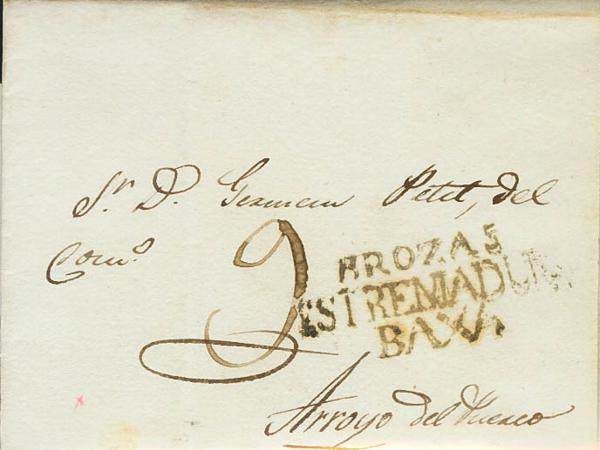 Sr. D. German Petit, del
Como.
BROZAS
ESTREMADURA
BAXA
Arroyo del Puerco